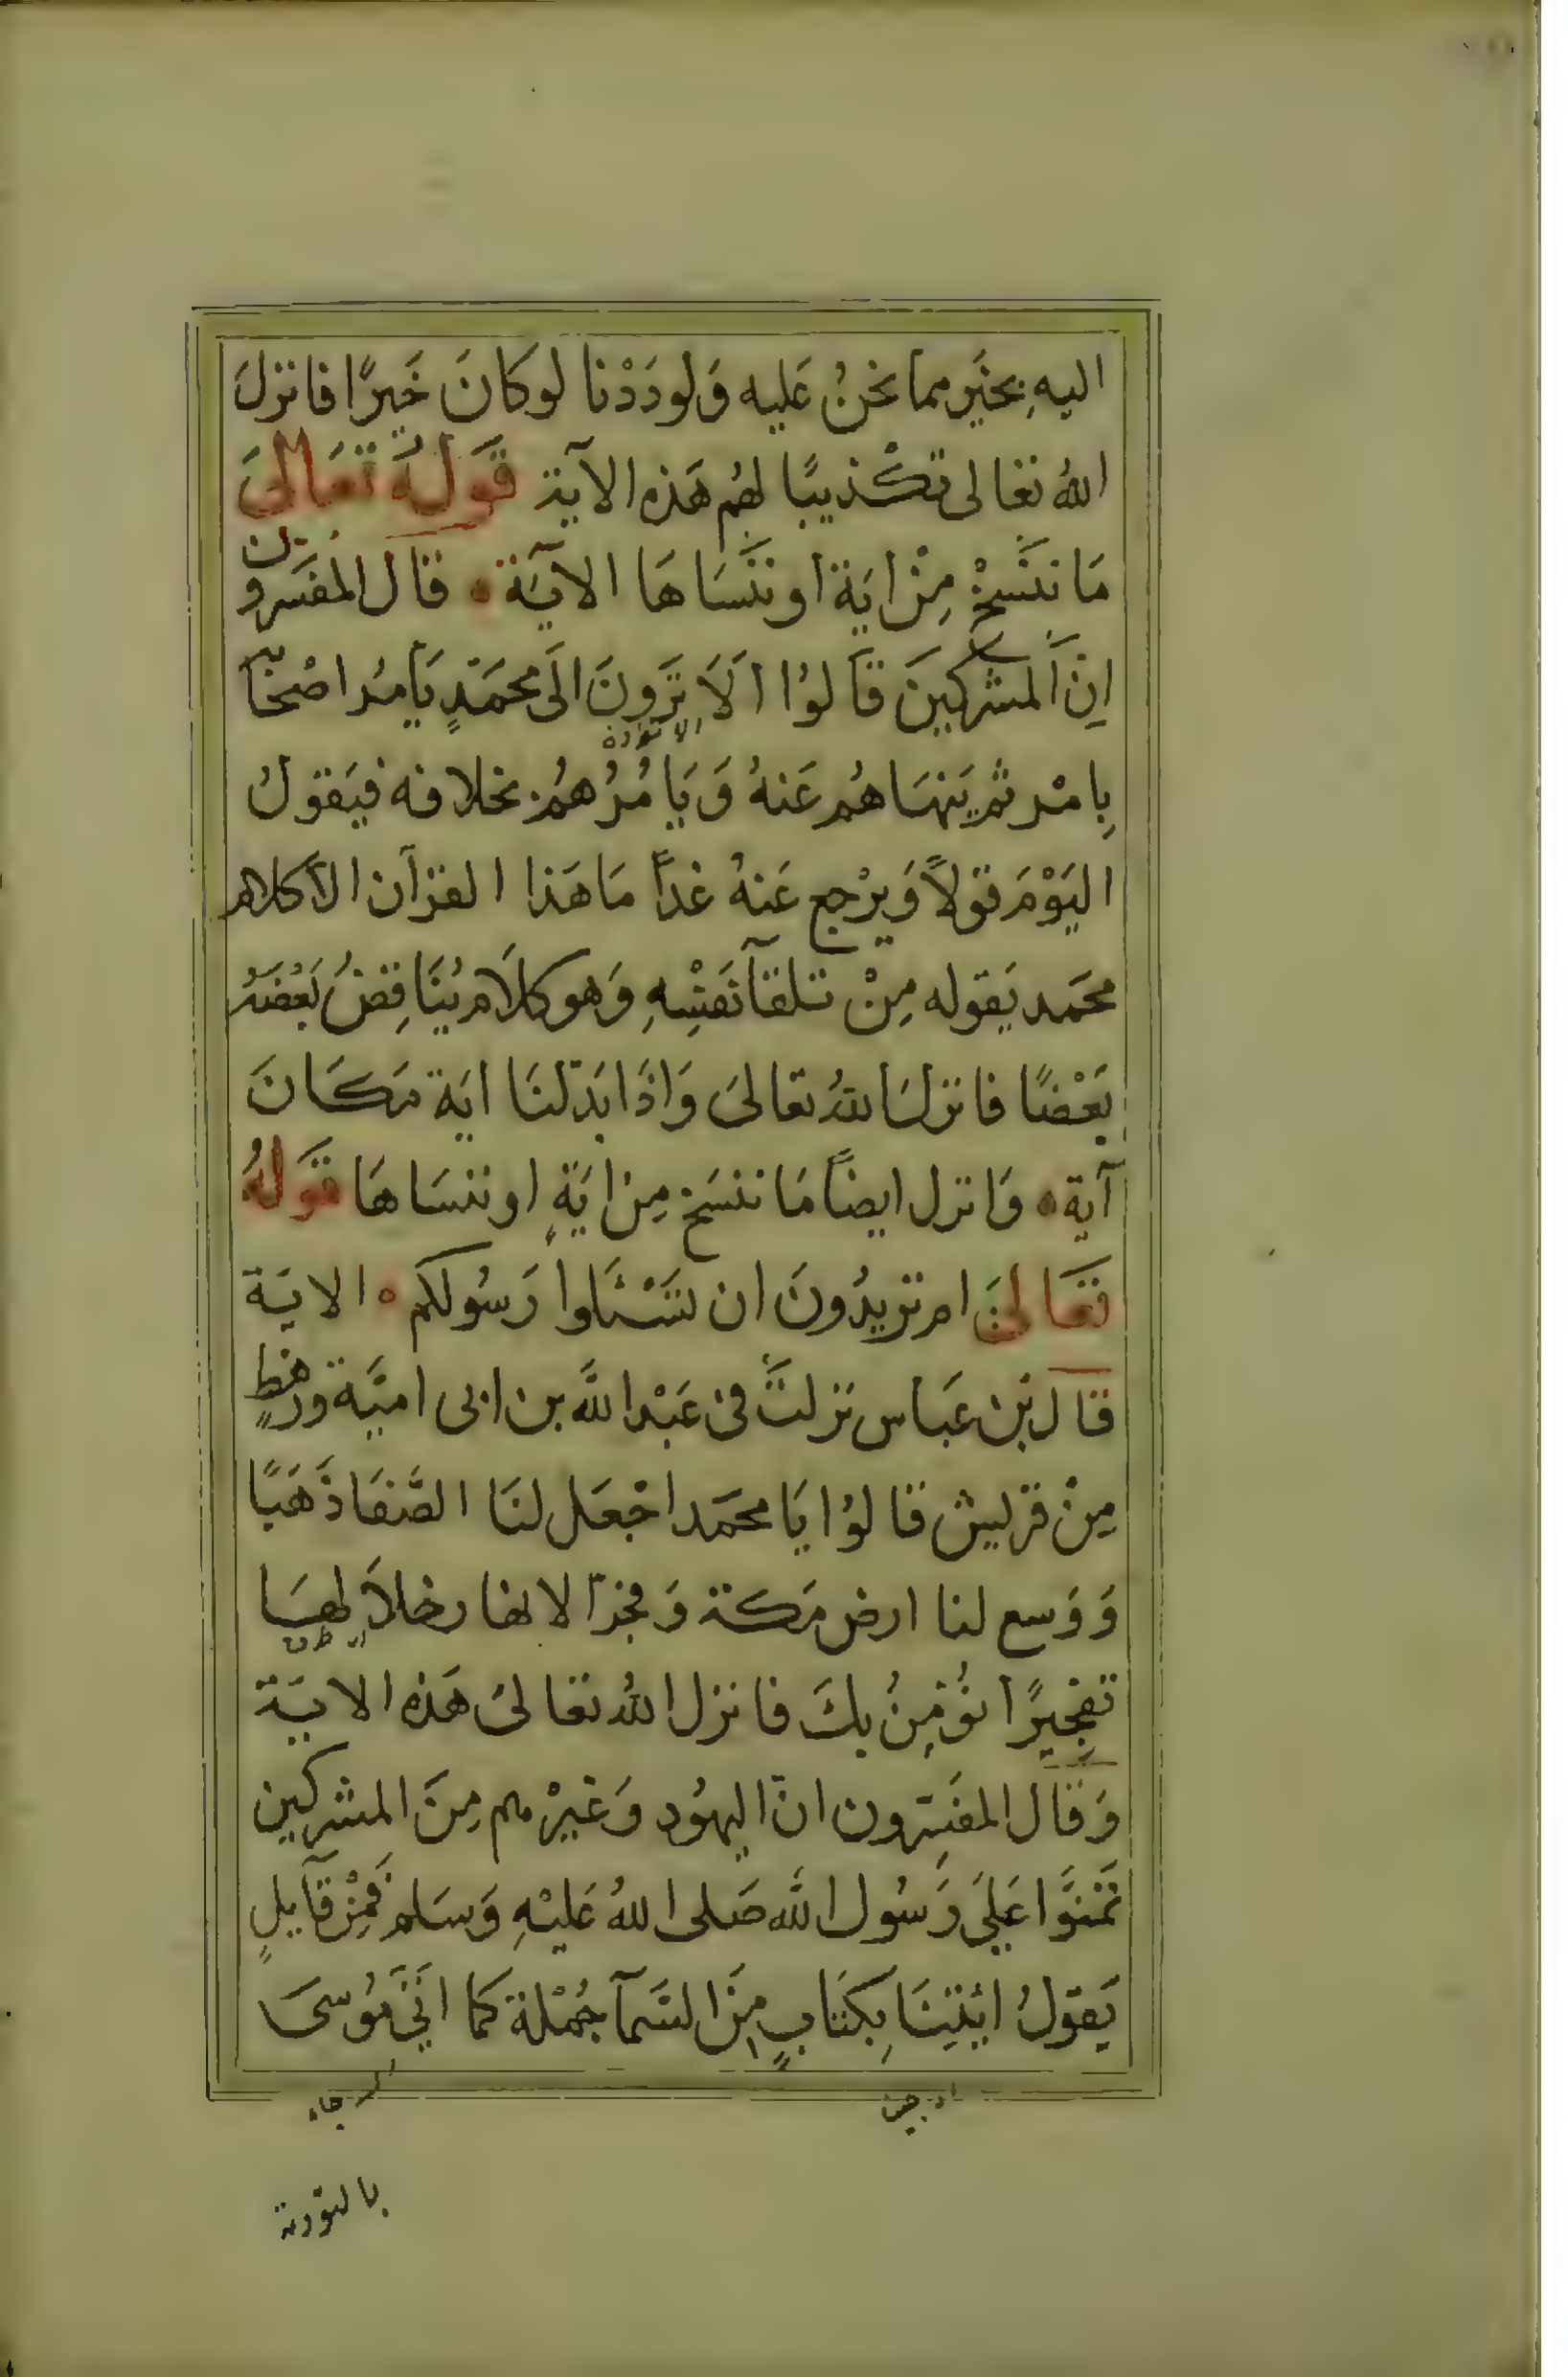 اليهِ بخَيرٍ مما نحنُ عَليه وَلودَدْنا لوكانَ خَيرًا فانزلَ
اللهُ تعالى تكْذيبًا لهُم هَذه الآية قَولهُ تعَالىَ
مَا ننَسخْ مِنْ ايَة او ننَسَاهَا الآيَة قال المفسرون
اِنَّ المشركينَ قالوُا الَا تَرونَ الَى محمَدٍ يَأمُر اصْحَابَه
بِامْر ثم يَنهَاهُم عَنهُ وَيَامُرُهمُ بخلافه فيَقولُ
اليَوْمَ قولاً وَيرْجع عَنهُ غداً مَا هَذا القرْآن الاّ كلام
محَمد يَقوله مِنْ تلقآ نَفسِهِ وَهو كلَام يُنَاقِضُ بَعْضهُ
بَعْضًا فانزلَ اللهُ تعالىَ وَاذَا بَدّلنَا ايَة مَكَانَ
آية وَانزل ايضاً مَا ننسَخ مِن ايَةٍ او ننسَاهَا قَولهُ
تعَالىَ ام تريدُونَ ان تسْئَلوا رَسُولكم الايَة
قال بن عَباس نزلتْ فى عَبْد اللَّه بن ابى اميَّة ورَهْطٍ
مِنْ قرليش قالوُا يَا محمَد اجْعَل لنَا الصَّفَا ذَهَبًا
وَوَسع لنا ارض مَكة وَفجرّ الانهار خلالَهَا
تفجيرًا نؤْمِنُ بكَ فانزل اللهُ تعَالىَ هَذه الايَة
وَقال المفَسِرون انّ اليهوُد وَغيرْهم مِنَ المشركين
تمَنَّوا عَلىَ رَسُول اللَّه صَلى اللهُ عَليْهِ وَسَلم فمِنْ قآيلٍ
يَقولُ ايْتِنَا بِكتَابٍ مِنَ السَّمآ جُمْلة كما اتَىَ مُوسَى
بالتورىة